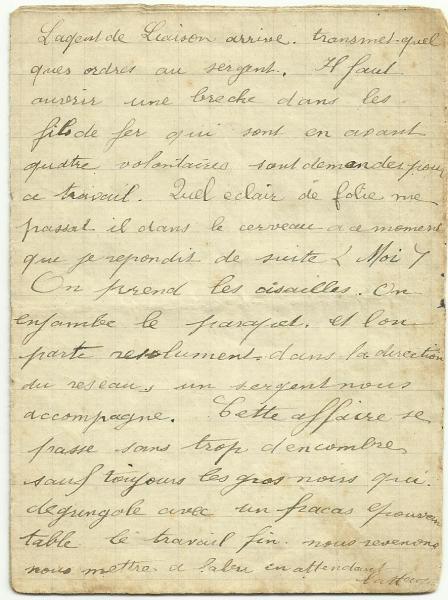 L'agent de Liaison arrive. transmet quel
ques ordres au sergent. Il faut
ouvrir une breche dans les
fils de fer qui sont en avant
quatre volontaires sont demendes pour
ce travail. Quel eclair de folie me
passat il dans le cerveau a ce moment
que je repondit de suite " Moi "
On prend les cisailles. on
enjambe le parapet. et l'on
parte resolument. dans la direction
du reseau, un sergent nous
accompagne. Cette affaire se
passe sans trop d'encombre
sauf toujours les gros noirs qui.
degringole avec un fracas epouven
table le travail fini. nous revenons
nous mettre a l'abri en attendant